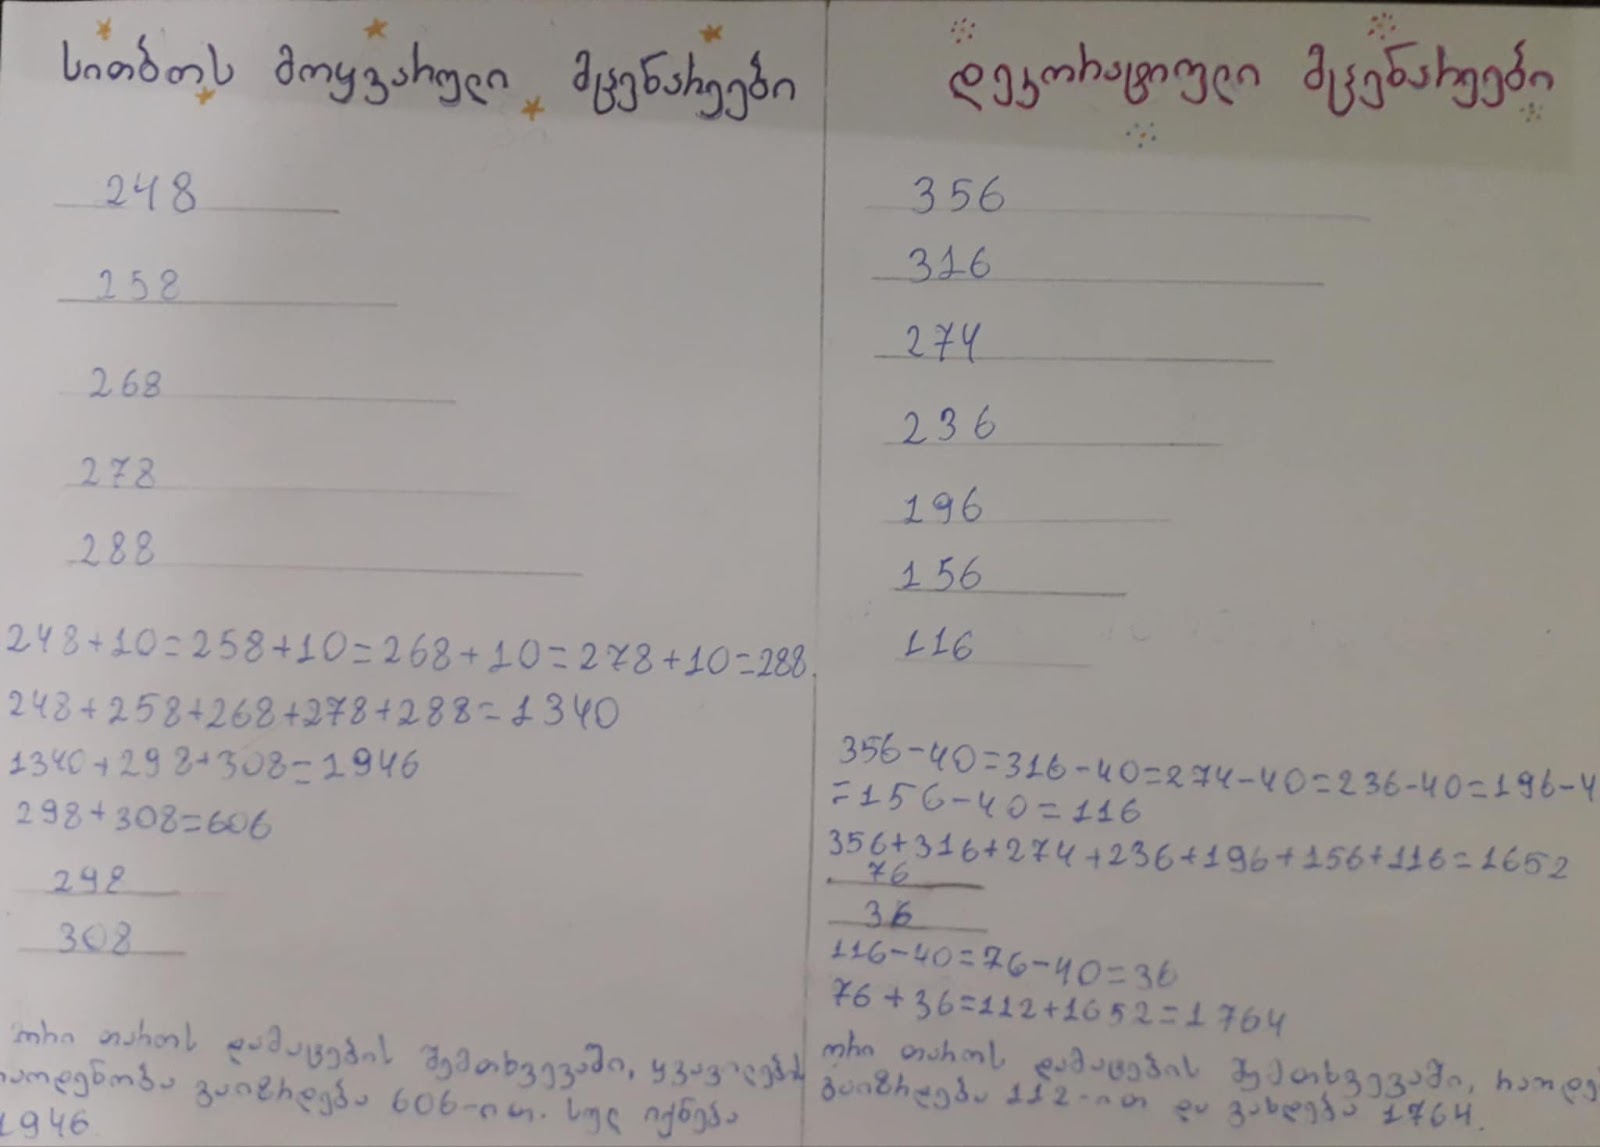 სითბოს მოყვარული მცენარეები
248
258
268
278
288
248+10=258+10=268+10=278+10=288.
248+258+268+278+288=1340
1340+298+308=1946
298+308=606
298
308
ორი თაროს დამატების შემთხვევაში, ყვავილების
რაოდენობა გაიზრდება 606-ით. სულ იქნება
1946.
დეკორატიული მცენარეები
356
316
274
236
196
156
116
356-40=316-40=274-40=236-40=196-4
=156-40=116
356+316+274+236+196+156+116=1652
76
36
116-40=76-40=36
76+36=112+1652=1764
ორი თაროს დამატების შემთხვევაში, რაოდე
გაიზრდება 112-ით და გახდება 1764.